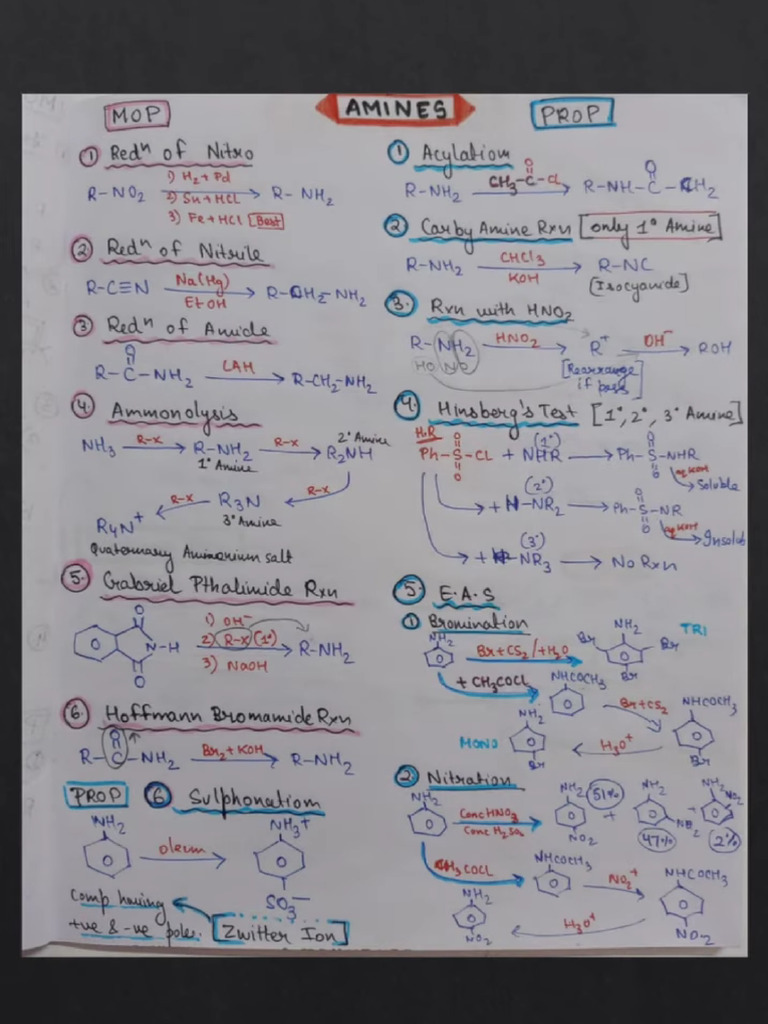 AMINES
MOP
① Redⁿ of Nitro
R-NO₂ 1) H₂+Pd 2) Sn+HCl 3) Fe+HCl [Best] → R-NH₂
② Redⁿ of Nitrile
R-C≡N Na(Hg) EtOH → R-CH₂-NH₂
③ Redⁿ of Amide
R-C-NH₂ LAH → R-CH₂-NH₂
O
④. Ammonolysis
NH₃ R-X → R-NH₂ R-X → R₂NH
1° Amine 2° Amine
R₄N⁺ ← R-X R₃N ← R-X
3° Amine
Quaternary Ammonium salt
⑤. Gabriel Pthalimide Rxn
O N-H O 1) OH⁻ 2) R-X (1°) 3) NaOH → R-NH₂
⑥. Hoffmann Bromamide Rxn
O
R-C-NH₂ Br₂+KOH → R-NH₂
PROP ⑥. Sulphonation
NH₂ oleum → NH₃⁺
SO₃⁻
Comp. having
+ve & -ve poles. [Zwitter Ion]
PROP
① Acylation
R-NH₂ CH₃-C-Cl → R-NH-C-CH₂
O O
② Carby Amine Rxn [only 1° Amine]
R-NH₂ CHCl₃ KOH → R-NC
[Isocyanide]
③. Rxn with HNO₂
R-NH₂ HNO₂ → R⁺ OH⁻ → ROH
HO NO
[Rearrange
if poss]
④. Hinsberg's Test [1°, 2°, 3° Amine]
H.R (1°)
Ph-S-CL + NHR → Ph-S-NHR
O O O O aq KOH → Soluble
(2°)
+ H-NR₂ → Ph-S-NR
O O aq KOH → Insolub
(3°)
+ NR₃ → No Rxn
⑤. E.A.S
① Bromination
NH₂ Br+CS₂/+H₂O → NH₂ Br Br Br TRI
+ CH₃COCL NHCOCH₃ Br+CS₂ NHCOCH₃
MONO NH₂ Br ← H₃O⁺ Br
② Nitration
NH₂ Conc HNO₃ Conc H₂SO₄ → NH₂ NO₂ 51% + NH₂ NO₂ 47% + NH₂ NO₂ 2%
CH₃COCL NHCOCH₃ NO₂⁺ → NHCOCH₃
NH₂ NO₂ ← H₃O⁺ NO₂